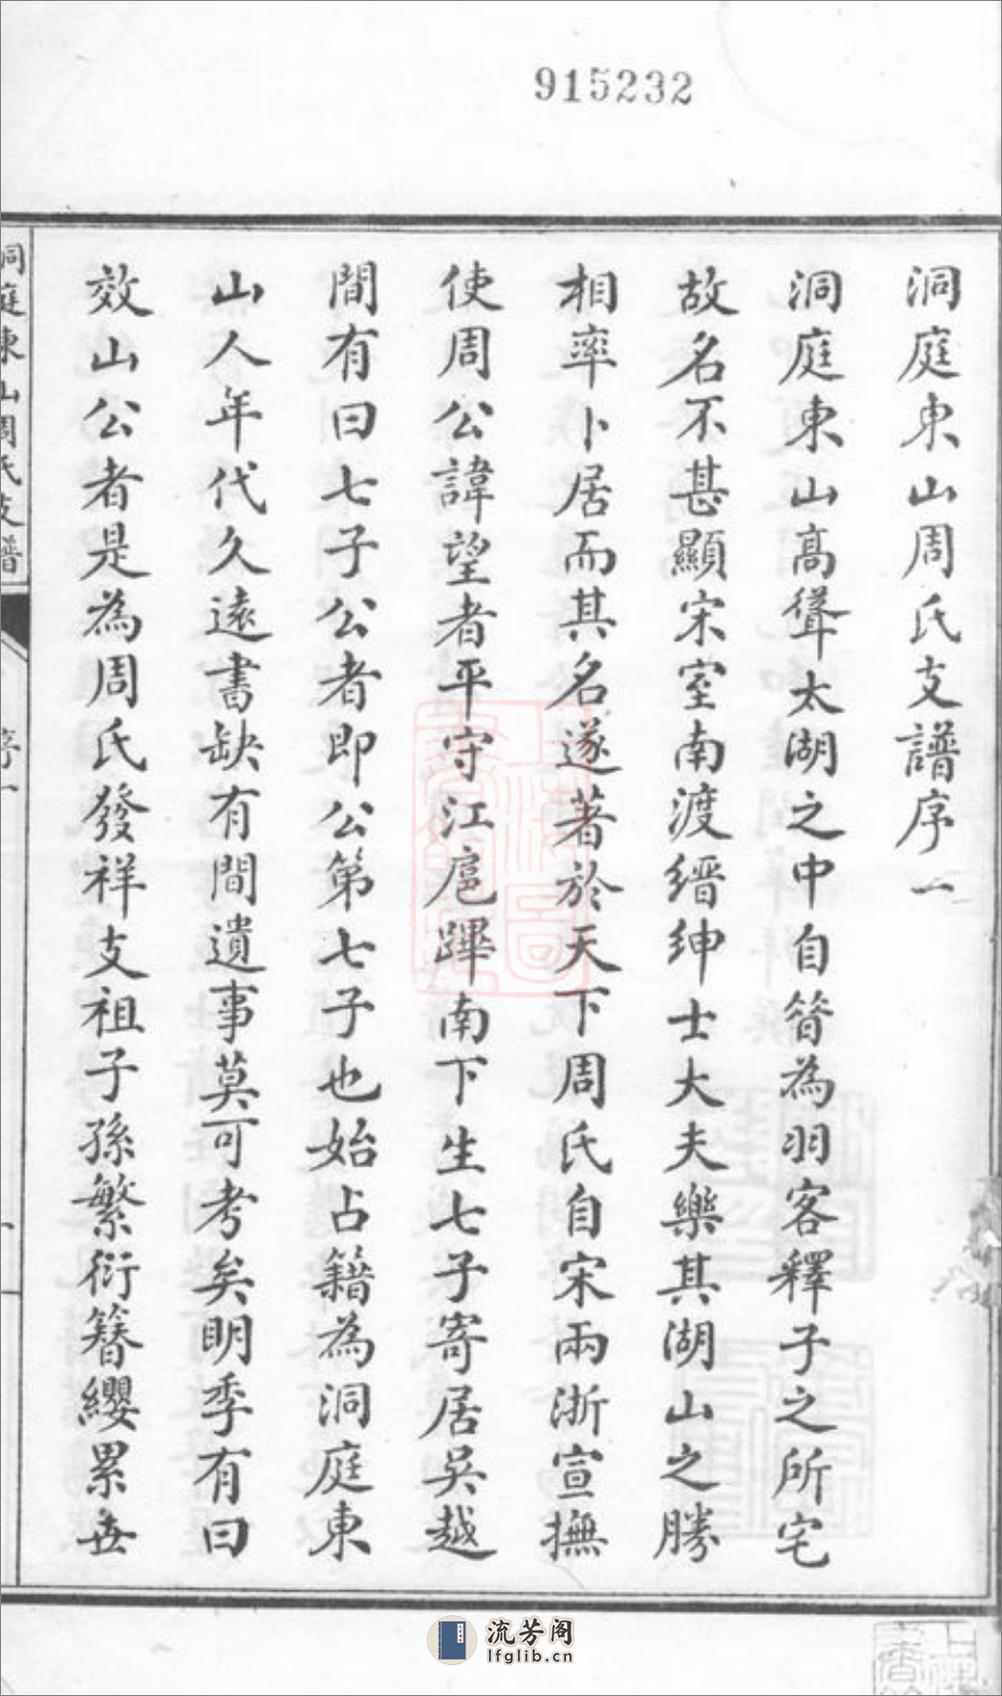 915232
洞庭東山周氏支譜序一
洞庭東山高聳太湖之中自昔為羽客釋子之所宅
故名不甚顯宋室南渡縉紳士大夫樂其湖山之勝
相率卜居而其名遂著於天下周氏自宋兩浙宣撫
使周公諱望者平守江扈蹕南下生七子寄居吳越
間有曰七子公者即公第七子也始占籍為洞庭東
山人年代久遠書缺有間遺事莫可考矣明季有曰
效山公者是為周氏發祥支祖子孫繁衍簪纓累世
洞庭東山周氏支譜
序一
一
流芳阁
lfglib.cn